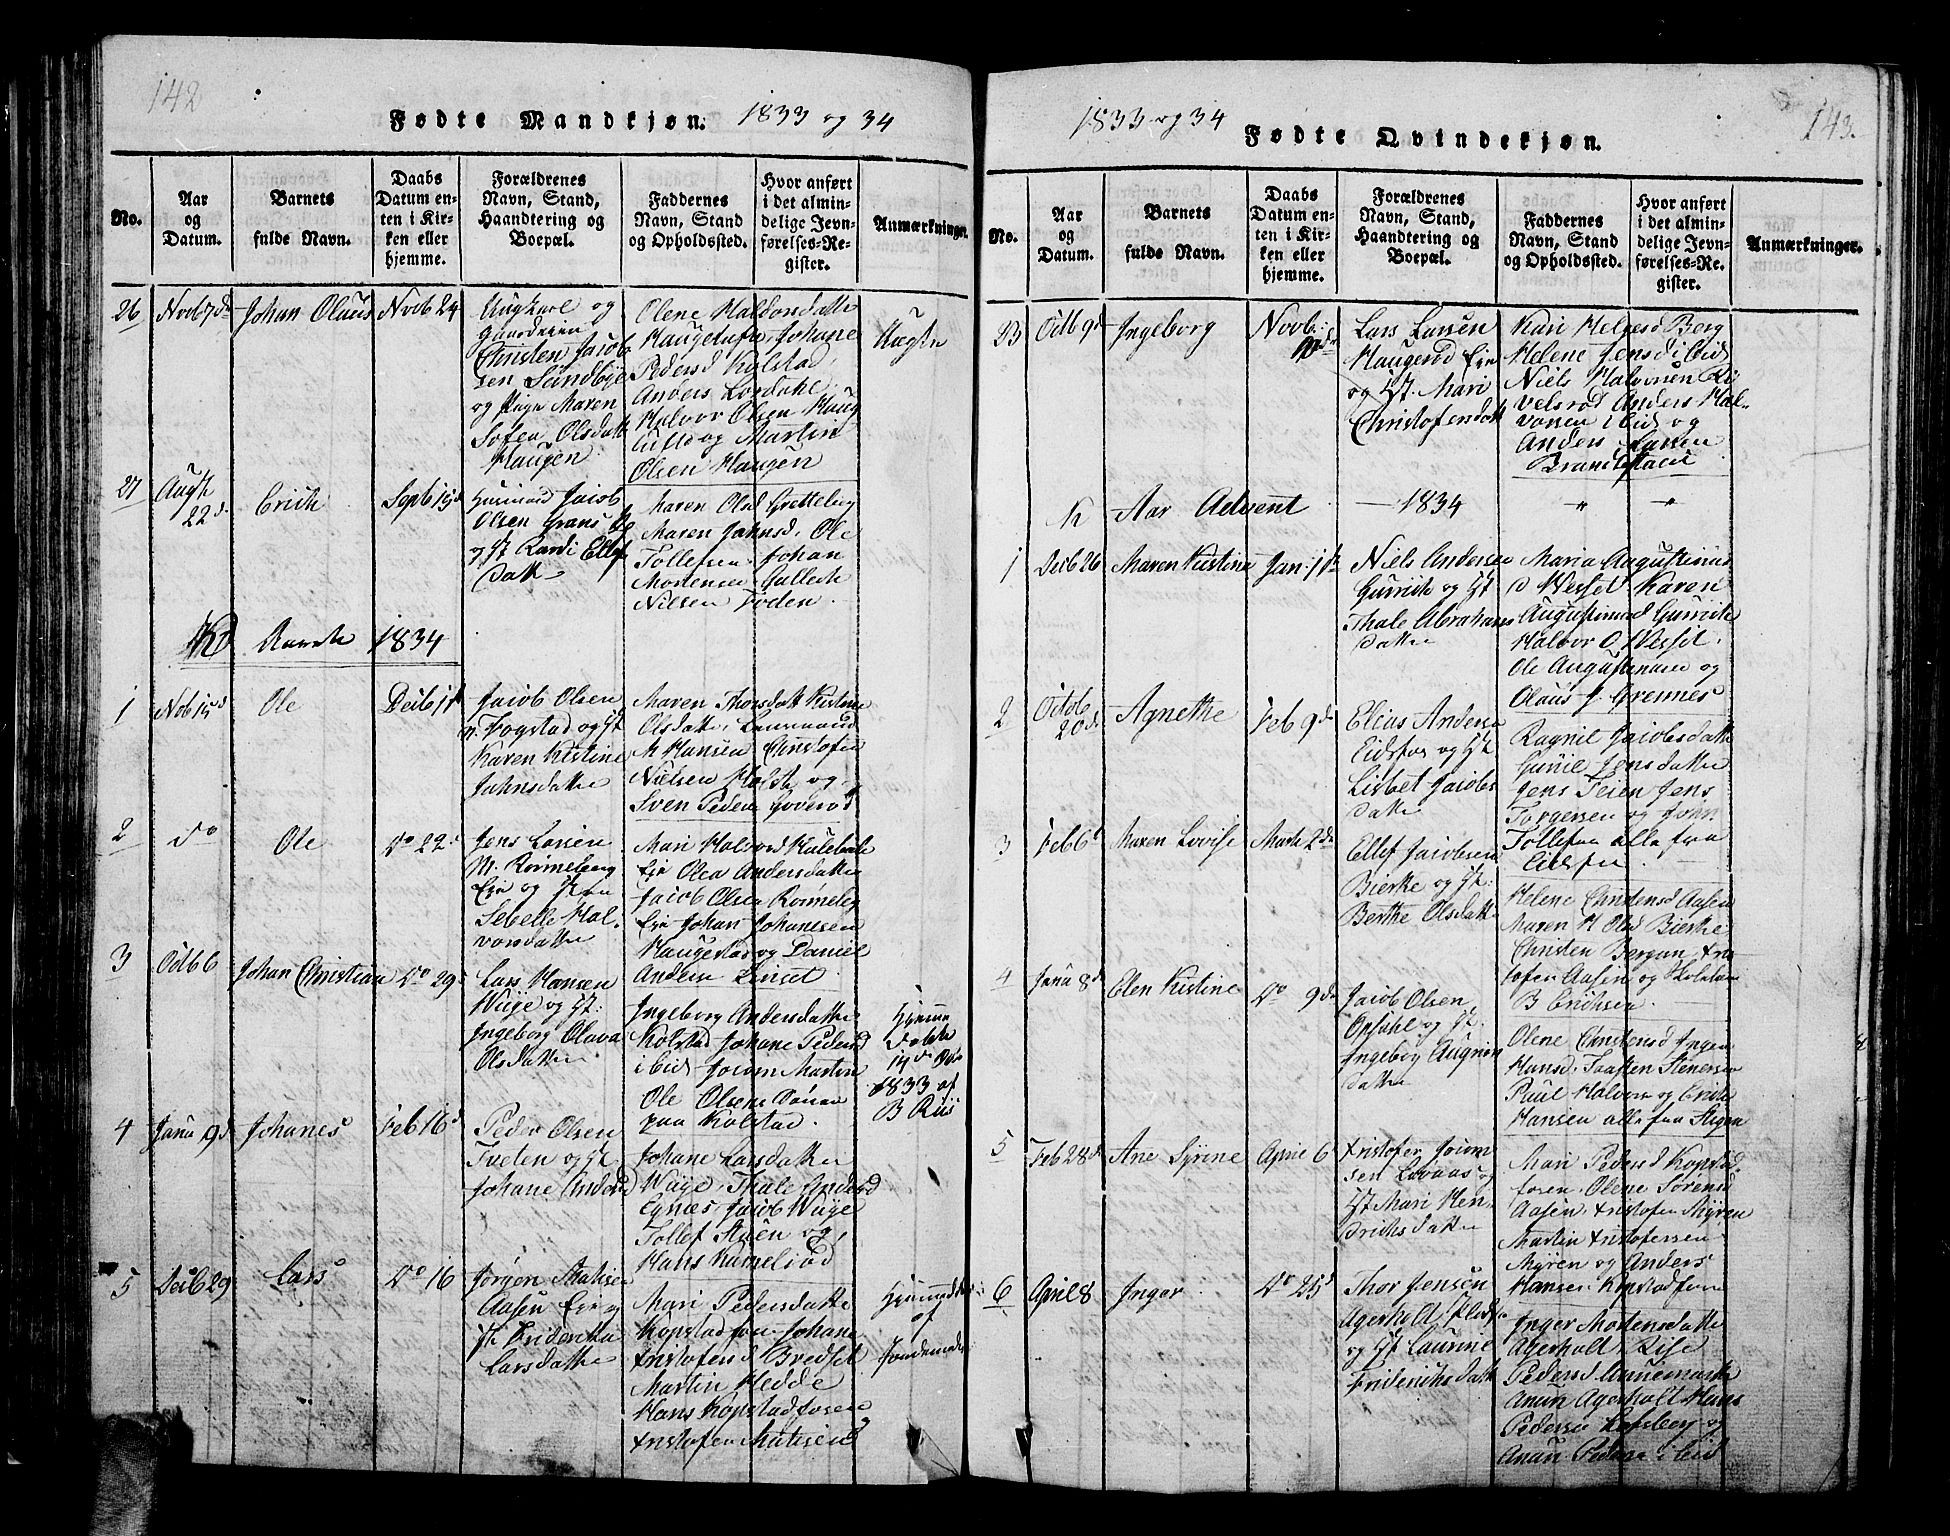 142
Fødte Mandkjøn. 1833 og 34
No.
Aar
og
Datum.
Barnets
fulde Navn.
Daabs
Datum en-
ten i Kir-
ken eller
hjemme.
Forældrenes
Navn, Stand,
Haandtering og
Boepæl.
Faddernes
Navn, Stand
og Opholdssted.
Hvor anført
i det almin-
delige Jevn-
førelses-Re-
gister.
Anmærkninger.
26
Novb 7de
Johan Olaus
Novb 24
Ungkarl og
Christen Jacob
sen Sundbye
og Pige Maren
Sofea Olsdatt
Haugen
Olene Haldorsdatter
Haugetufta, Johane
Pedersd Kolstad
Anders Lordahl
Halvor Olsen Haug
og Martin
Olsen Haugen
Uægte
27
Augt
22d.
Erich
Septb 15d
Huusmand Jacob
Olsen
og H Randi Ellefs
datt
Maren Olsd Gretteberg
Maren Johnsd, Ole
Tollefsen Johan
Mortensen Gullech
Nilsen Foden
Kd Aarets 1834
1
Nob 15d
Ole
Decb 1t
Jacob Olsen
n. Fogstad og H
Karen Kistine
Johnsdatter
Maren Thorsdatt Kistine
Olsdatter,
M Hansen Christofer
Nielsen Holst og
Sven Pedersen Goverød
2
do
Ole
do 22d
Jens Larsen
M. Rønneberg
Eje og H
Sebelle Hal-
vorsdatter
Mari Halvorsd
Eje Olea Andersdatter
Jacob Olsen Rønneberg
Eje Johan Johanesen
Haugestad og Daniel
Andersen Linset
3
Octb 6
Johan Christian
do 29
Lars Hansen
Wüje og H:
Ingeborg Olava
Olsdatter
Ingeborg Andersdatter
Kolstad Johane Pedersd
ibid Jocum Martin
Ole Olsen
paa Kolstad.
Hjemme
døbte
14d Octb
1833 af
B Riis
4
Janu 9d
Johanes
Feb 16d
Peder Olsen
Tveten og H
Johane Andersd
Johane Larsdatter
Wüje, Thale Andersd
Egnæs, Jacob Wüje
Tollef Støen og
Hans Hameltrød
5
Decb 29
Lars
do 16
Jørgen Matisen
Aasen Eje og
H: Fridericha
Larsdatter
Mari Pedersdatter
Kopstadfosen Johane
Kristofersd Bredset
Martin Hedde
Hans Kopstadfosen
Kristofer Matisen
Hjemmedøbt
af
Jordemoder
143.
1833 og 34
Fødte Qvindekjøn.
No.
Aar
og
Datum.
Barnets
fulde Navn.
Daabs
Datum en-
ten i Kir-
ken eller
hjemme.
Forældrenes
Navn, Stand,
Haandtering og
Boepæl.
Faddernes
Navn, Stand
og Opholdssted.
Hvor anført
i det almin-
delige Jevn-
førelses-Re-
gister.
Anmærkninger.
23
Octb 9d
Ingeborg
Novb:
Lars Larsen
Haugerød Eje
og H. Mari
Christofersdatt
Kari Helgesd Berg
Helene Jensd ibid
Niels Halvorsen Ri
velsrod Anders Hal-
vorsen ibid og
Anders Larsen
K Aar Advent — 1834 " "
1
Decb 26
Maren Kistine
Jan. 1te
Niels Andersen
Gurrich og H
Thale Abrahams
datter
Maria Augustinus
d Vesset Karen
Augustinusd Gurrich
Halvor O Vesset,
Ole Augustinusen og
Olaus J. Grennes
2
Octob
20d.
Agnethe
Feb 9d
Elias Andersen
Eidsfos og H
Lisbet Jacobs
datter
Ragnil Jacobsdatter
Gunil Jensdatter
Jens Teien Jens
Torgersen og John
Tollefsen alle fra
Eidsfos
3
Feb 6d
Karen Lovise
Marts 2d
Ellef Jacobsen
Bierke og H:
Berthe Olsdatt
Helene Christensd Aasen
Maren H Olsd Bierke
Christen Bergan Kris
tofer Aasen og
B Erichsen
4
Janu 8d
Elen Kistine
do 9d
Jacob Olsen
Opsahl og H
Ingeborg Augrim
datter
Olene Christensd Ingen
Hansd, Torsten Stenersen
Paul Halvors og Erich
Hansen alle fra Skigen
5
Feb 28d
Ane Syrine
April 6
Kristofer Jocum
sen Lovaas og
H Mari Hen-
drichsdatter
Mari Pedersd Kopstad
fosen, Olene Sørensd
Aasen, Kristofer Myren
Martin Kristofersen
Myren og Anders
Hansen Kopstadfosen
6
April 8
Inger
do 25d
Thor Jensen
Agerholt Plads
og H Laurine
Friderichsdatt
Inger Mortensdatter
Agerholt, Lise
Pedersd Annemarke
Anun Agerholt Hans
Pedersen Lofsberg og
Anun Pedersen ibid